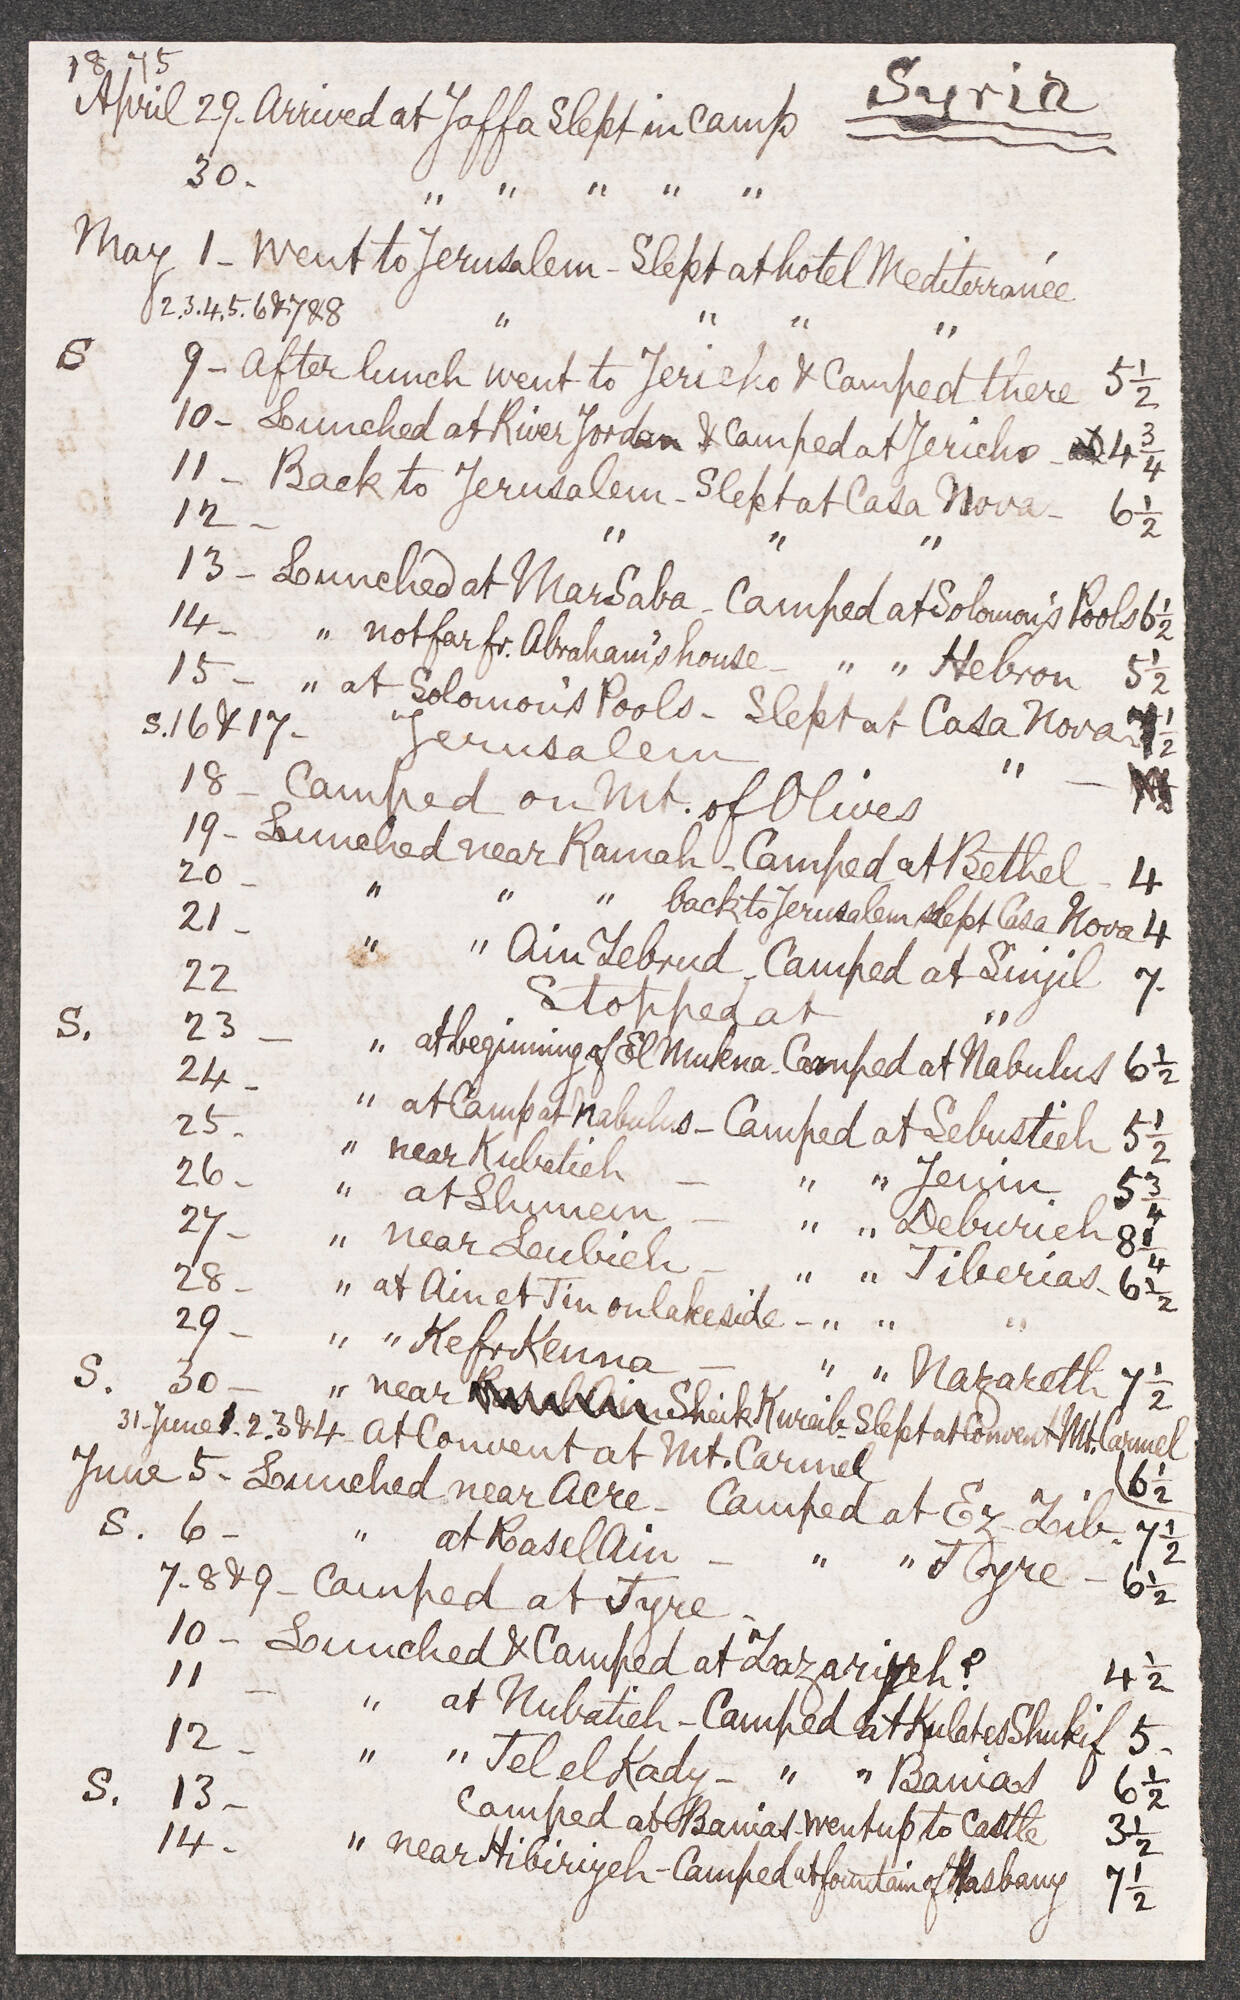 1875
Syria
April 29. Arrived at Jaffa Slept in camp
30. " " " " "
May 1 - Went to Jerusalem - Slept at hotel Mediterranée
2.3.4.5.6&7&8 " " " "
S 9 - After lunch went to Jericho & Camped there 5 1/2
10 - Lunched at River Jordan & Camped at Jericho - 4 3/4
11 - Back to Jerusalem - Slept at Casa Nova - 6 1/2
12 - " " "
13 - Lunched at Mar Saba - Camped at Solomon's Pools 6 1/2
14 - " not far fr. Abraham's house - " " Hebron 5 1/2
15 - " at Solomon's Pools - Slept at Casa Nova 1/2
S. 16 & 17 - Jerusalem " -
18 - Camped on Mt. of Olives
19 - Lunched near Ramah - Camped at Bethel - 4
20 - " " " back to Jerusalem slept Casa Nova 4
21 - " " Ain Zebrud - Camped at Sinjil 7.
22 Stopped at "
S. 23 - " at beginning of El Mukna - Camped at Nabulus 6 1/2
24 - " at Camp at Nabulus - Camped at Sebustieh 5 1/2
25. " near Kubatieh - " " Jenin 5 3/4
26 - " at Shunem - " " Deburieh 8 1/4
27 - " near Leubieh - " " Tiberias - 6 1/2
28 - " at Ain et Tin on lakeside - " " "
29 - " " Kefr Kenna - " " Nazareth 7 1/2
S. 30 - " near Sheik Kureib - Slept at Convent Mt. Carmel
6 1/2
31 - June 1. 2. 3 & 4 - At Convent at Mt. Carmel
June 5 - Lunched near Acre - Camped at Ez Zib - 7 1/2
S. 6 - " at Ras el Ain - " " Tyre - 6 1/2
7 - 8 & 9 - Camped at Tyre -
10 - Lunched & Camped at Zazariyeh? 4 1/2
11 - " at Nubatieh - Camped at Kulat es Shukif 5 -
12 - " " Tel el Kady - " " Banias 6 1/2
S. 13 - Camped at Banias - went up to Castle 3 1/2
14 - " near Hibiriyeh - Camped at fountain of Hasbany 7 1/2